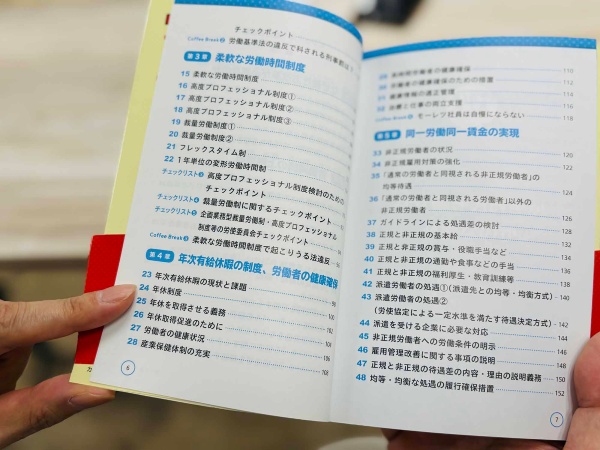 チェックポイント
Coffee Break❷ 労働基準法の違反で科される刑事罰は
第3章 柔軟な労働時間制度
15 柔軟な労働時間制度
16 高度プロフェッショナル制度①
17 高度プロフェッショナル制度②
18 高度プロフェッショナル制度③
19 裁量労働制①
20 裁量労働制②
21 フレックスタイム制
22 1年単位の変形労働時間制
チェックリスト❸ 高度プロフェッショナル制度検討のための
チェックポイント
チェックリスト❹ 裁量労働制に関するチェックポイント
チェックリスト❺ 企画業務型裁量労働制・高度プロフェッショナル
制度等の労使委員会チェックポイント
Coffee Break❸ 柔軟な労働時間制度で起こりうる法違反
第4章 年次有給休暇の制度、労働者の健康確保
23 年次有給休暇の現状と課題
24 年休制度 98
25 年休を取得させる義務 100
26 年休取得促進のために
27 労働者の健康状況
28 産業保健体制の充実 108
6
健康確保 110
のための措置 112
の適正管理 114
治療と仕事の両立支援 116
モーレツ社員は自慢にならない 118
第5章 同一労働同一賃金の実現
33 非正規労働者の状況 120
34 非正規雇用対策の強化 122
35 「通常の労働者と同視される非正規労働者」の
均等待遇 124
36 「通常の労働者と同視される労働者」以外の
非正規労働者 126
37 ガイドラインによる処遇差の検討 128
38 正規と非正規の基本給 132
39 正規と非正規の賞与・役職手当など 134
40 正規と非正規の通勤や食事などの手当 136
41 正規と非正規の福利厚生・教育訓練等 138
42 派遣労働者の処遇①(派遣先との均等・均衡方式) 140
43 派遣労働者の処遇②
(労使協定による一定水準を満たす待遇決定方式) 142
44 派遣を受ける企業に必要な対応 144
45 非正規労働者への労働条件の明示 146
46 雇用管理改善に関する事項の説明 148
47 正規と非正規の待遇差の内容・理由の説明義務 150
48 均等・均衡な処遇の履行確保措置 152
7